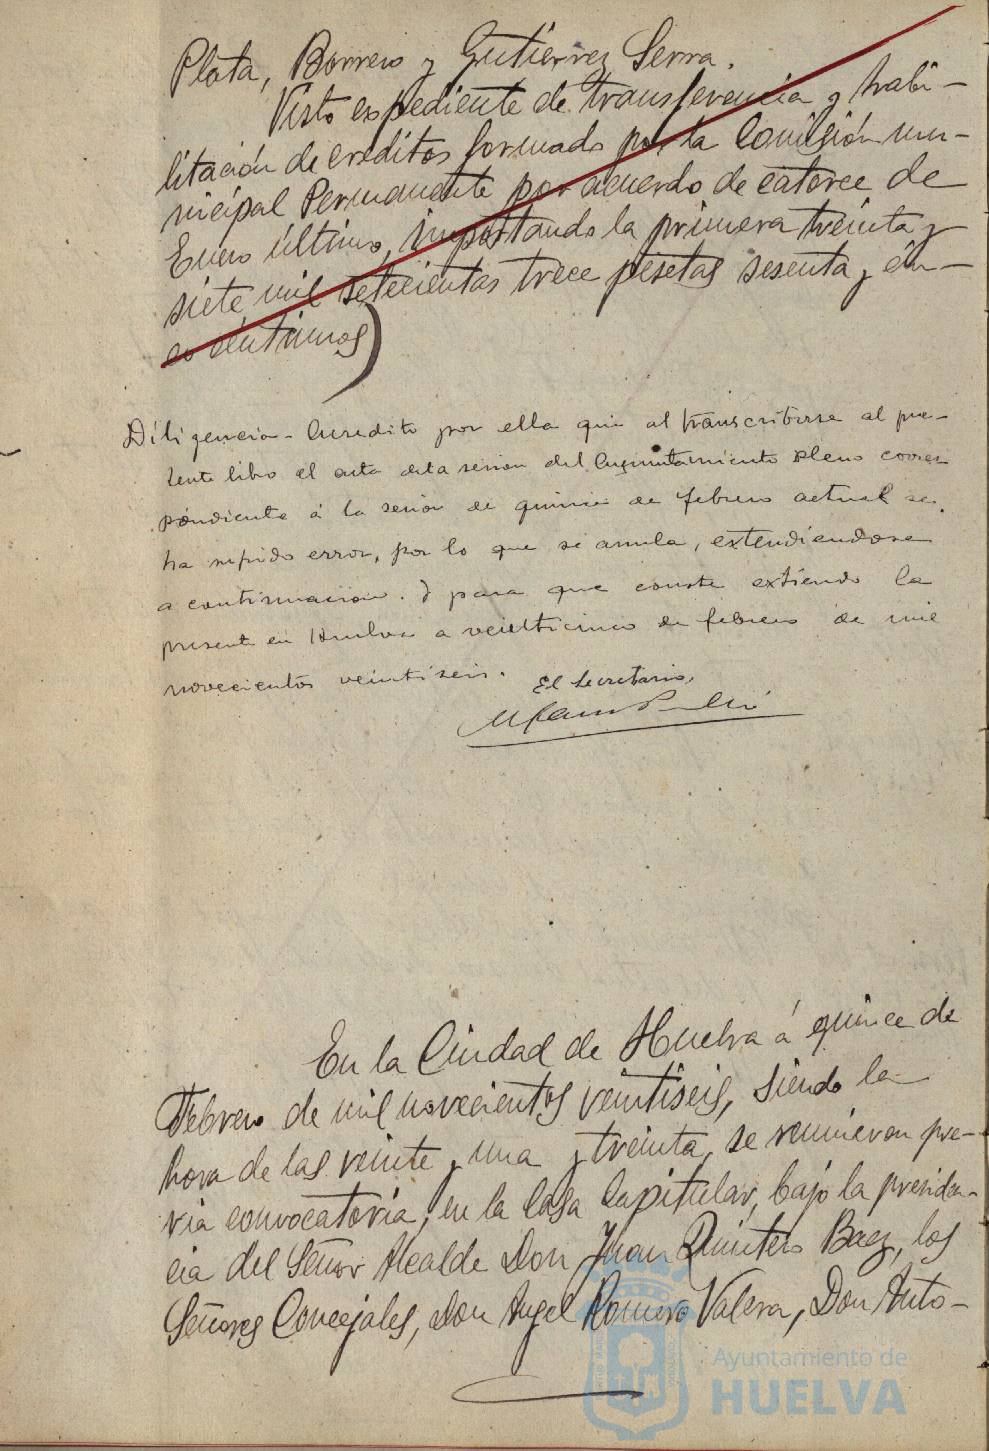 Plata, Borrero y Gutierrez Serra.
Visto expediente de transferencia y habi-
litación de creditos formado por la Comisión mu-
nicipal Permanente por acuerdo de catorce de
Enero último, importando la primera treinta y
siete mil setecientas trece pesetas sesenta y cin-
co centimos)
Diligencia - Acredito por ella que al transcribirse al pre-
sente libro el acta de la sesion del Ayuntamiento pleno corres
pondiente á la sesion de quince de febrero actual se
ha sufrido error, por lo que se anula, extendiendose
a continuacion. Y para que conste extiendo la
presente en Huelva a veinticinco de febrero de mil
novecientos veintiseis.
El Secretario,
En la Ciudad de Huelva á quince de
Febrero de mil novecientos veintiseis, siendo la
hora de las veinte y una y treinta, se reunieron pre-
via convocatoria, en la Casa Capitular, bajo la presiden-
cia del Señor Alcalde Don Juan Quintero Baez, los
Señores Concejales, Don Angel Romero Valera, Don Anto-
Ayuntamiento de
HUELVA